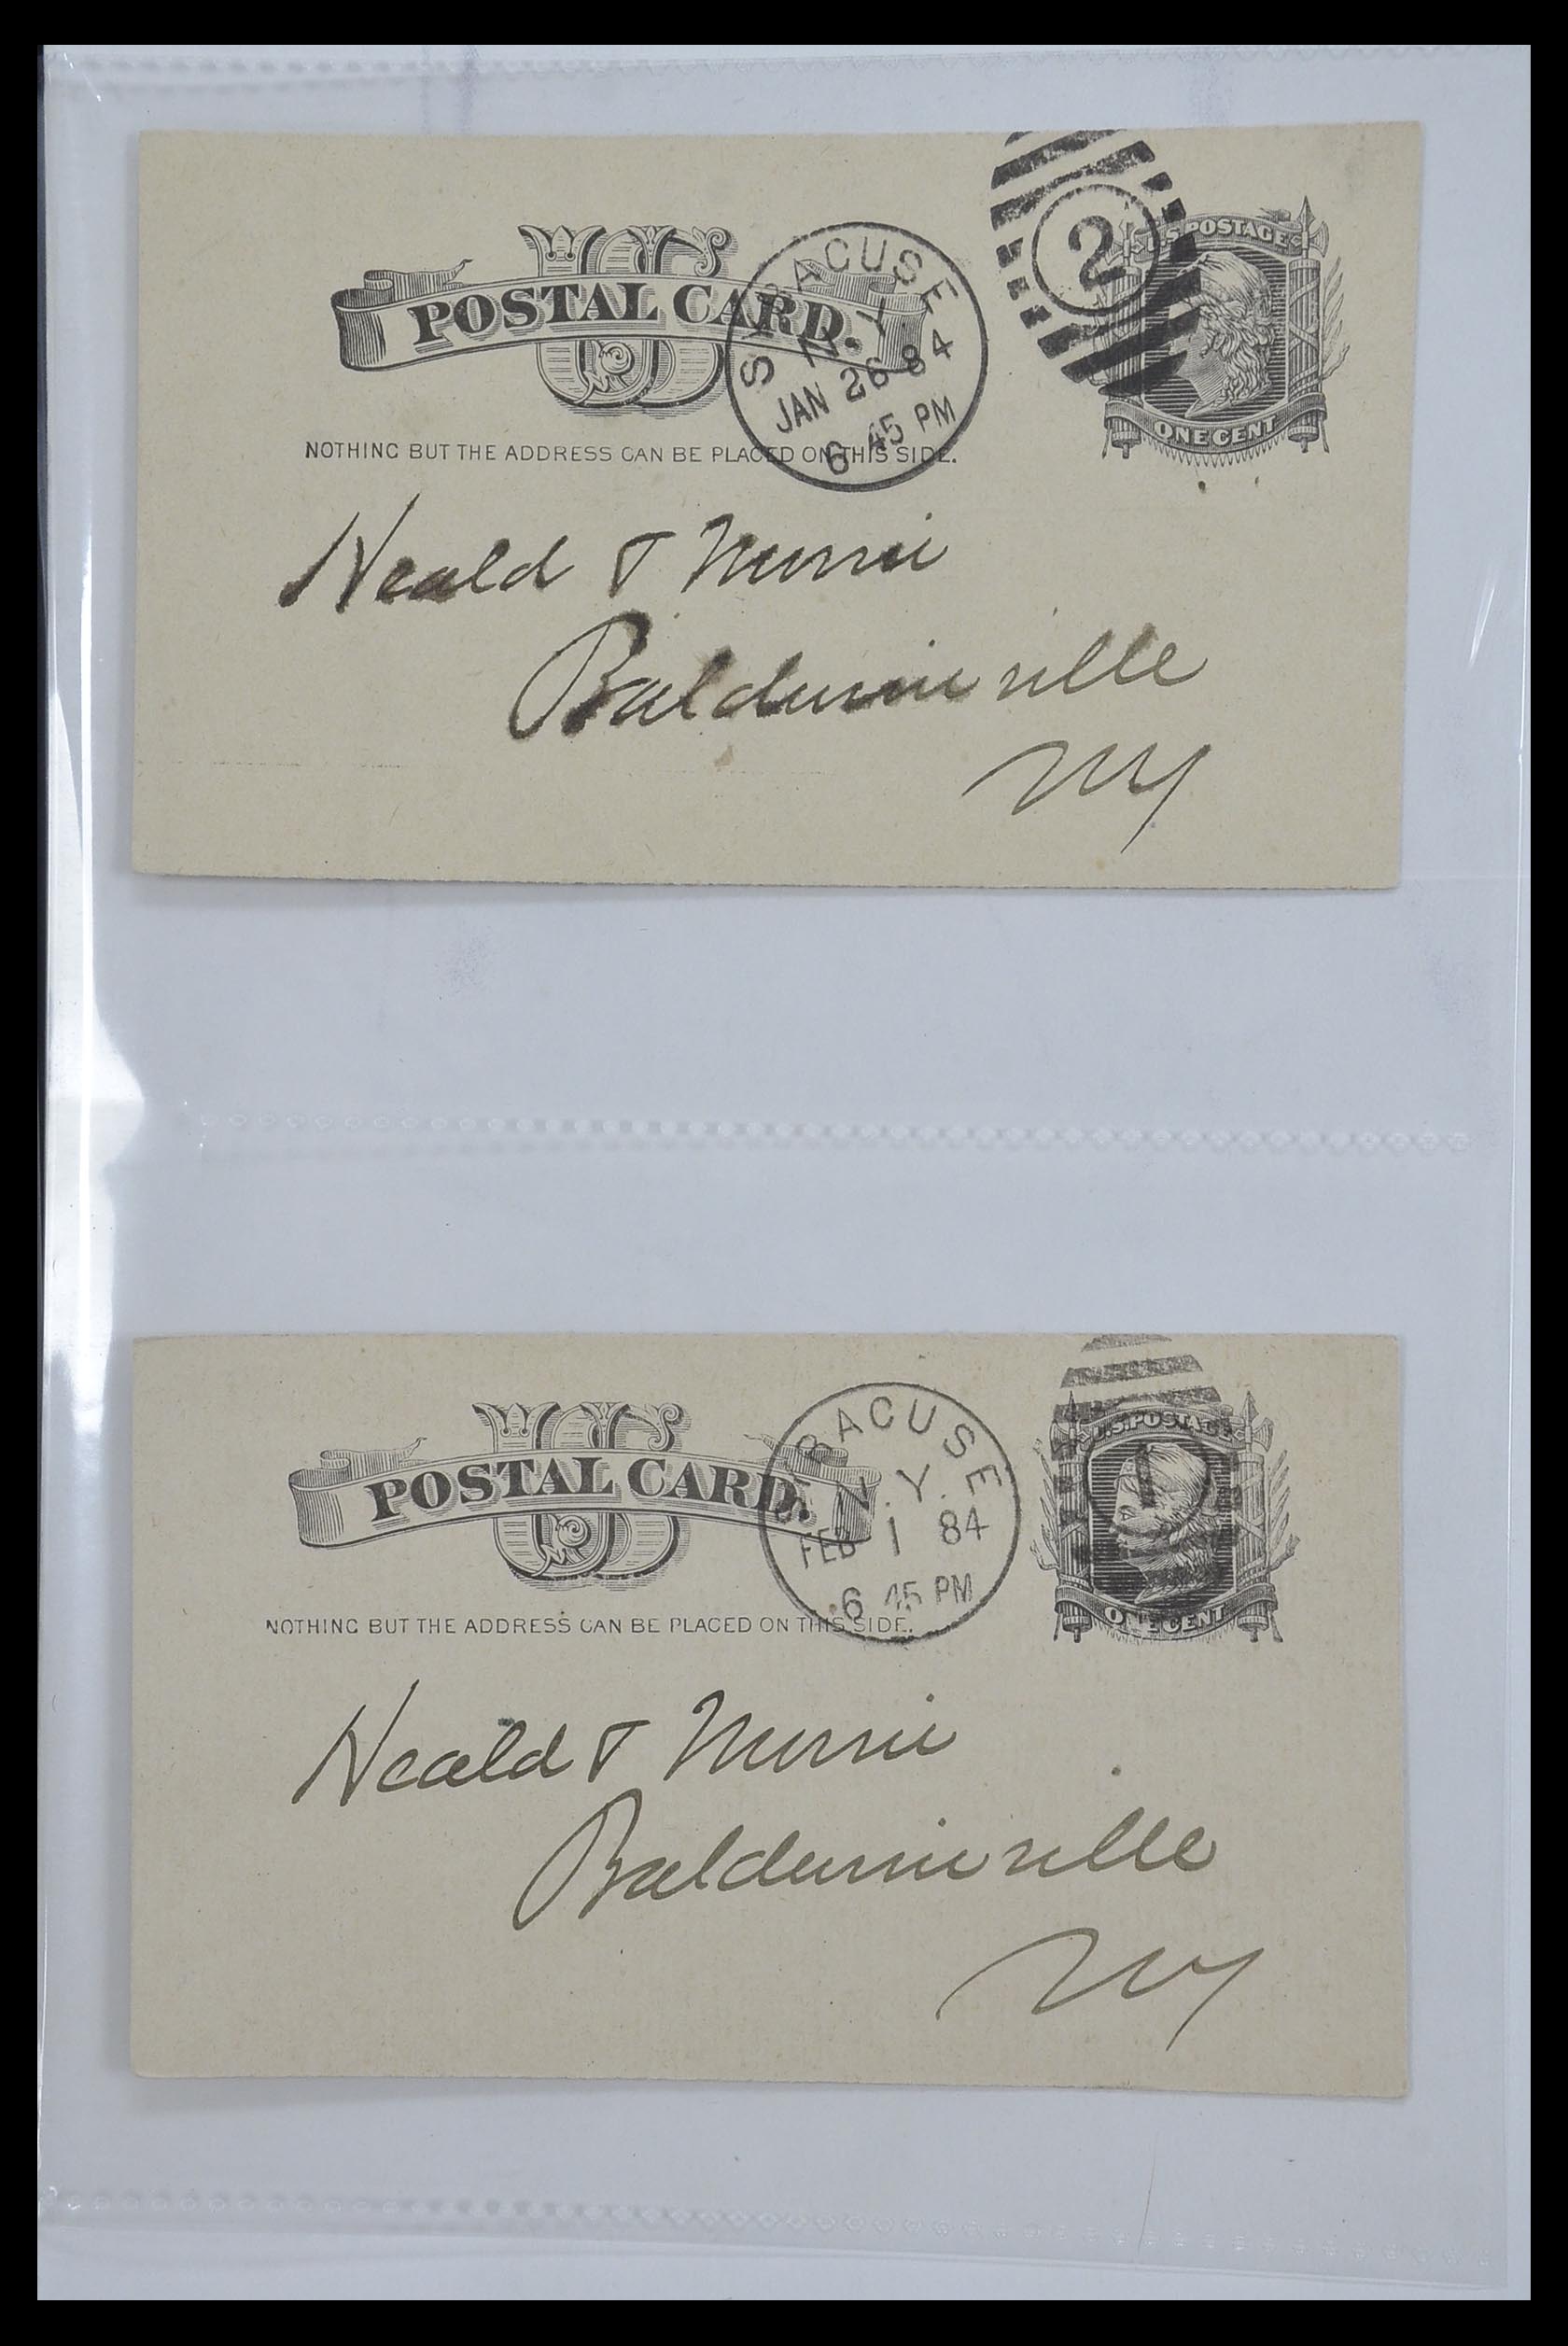 US
POSTAL CARD.
NOTHING BUT THE ADDRESS CAN BE PLACED ON THIS SIDE.
SYRACUSE
N.Y.
JAN 26 84
6 45 PM
2
U.S. POSTAGE
ONE CENT
Heald & Morris
Baldwinsville
NY
US
POSTAL CARD.
NOTHING BUT THE ADDRESS CAN BE PLACED ON THIS SIDE.
SYRACUSE
N.Y.
FEB 1 84
6 45 PM
1
U.S. POSTAGE
ONE CENT
Heald & Morris
Baldwinsville
NY